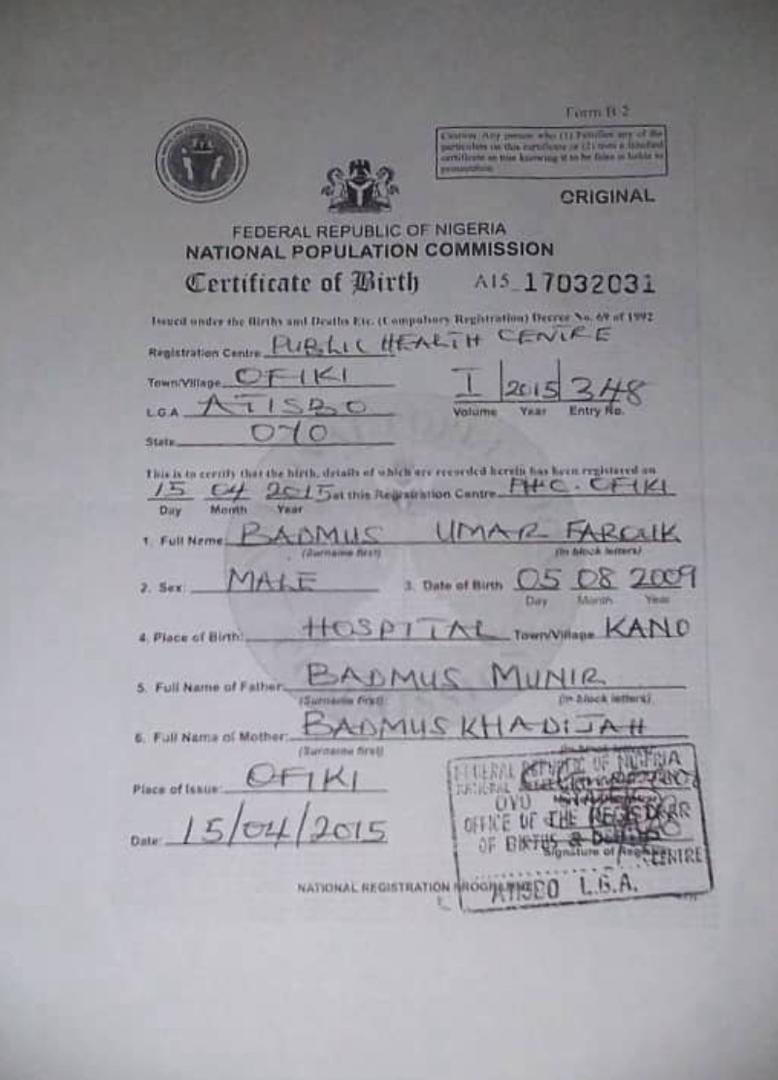 Form B-2
Caution: Any person who (1) Falsifies any of the
particulars on this certificate or (2) uses a falsified
certificate as true knowing it to be false is liable to
prosecution
ORIGINAL
FEDERAL REPUBLIC OF NIGERIA
NATIONAL POPULATION COMMISSION
Certificate of Birth A15 17032031
Issued under the Births and Deaths Etc. (Compulsory Registration) Decree No. 69 of 1992
Registration Centre PUBLIC HEALTH CENTRE
Town/Village OFIKI
I 2015 348
Volume Year Entry No.
L.G.A ATISBO
State OYO
This is to certify that the birth, details of which are recorded herein has been registered on
15 04 2015 at this Registration Centre PHC. OFIKI
Day Month Year
1. Full Name BADMUS UMAR FAROUK
(Surname first) (in block letters)
2. Sex: MALE 3. Date of Birth 05 08 2009
Day Month Year
4. Place of Birth: HOSPITAL Town/Village KANO
5. Full Name of Father: BADMUS MUNIR
(Surname first) (in block letters)
6. Full Name of Mother: BADMUS KHADIJAH
(Surname first)
Place of Issue: OFIKI
Date: 15/04/2015
FEDERAL REPUBLIC OF NIGERIA
NATIONAL
OYO
OFFICE OF THE REGISTRAR
OF BIRTHS &
Signature of
CENTRE
ATISBO L.G.A.
NATIONAL REGISTRATION PROGRAMME